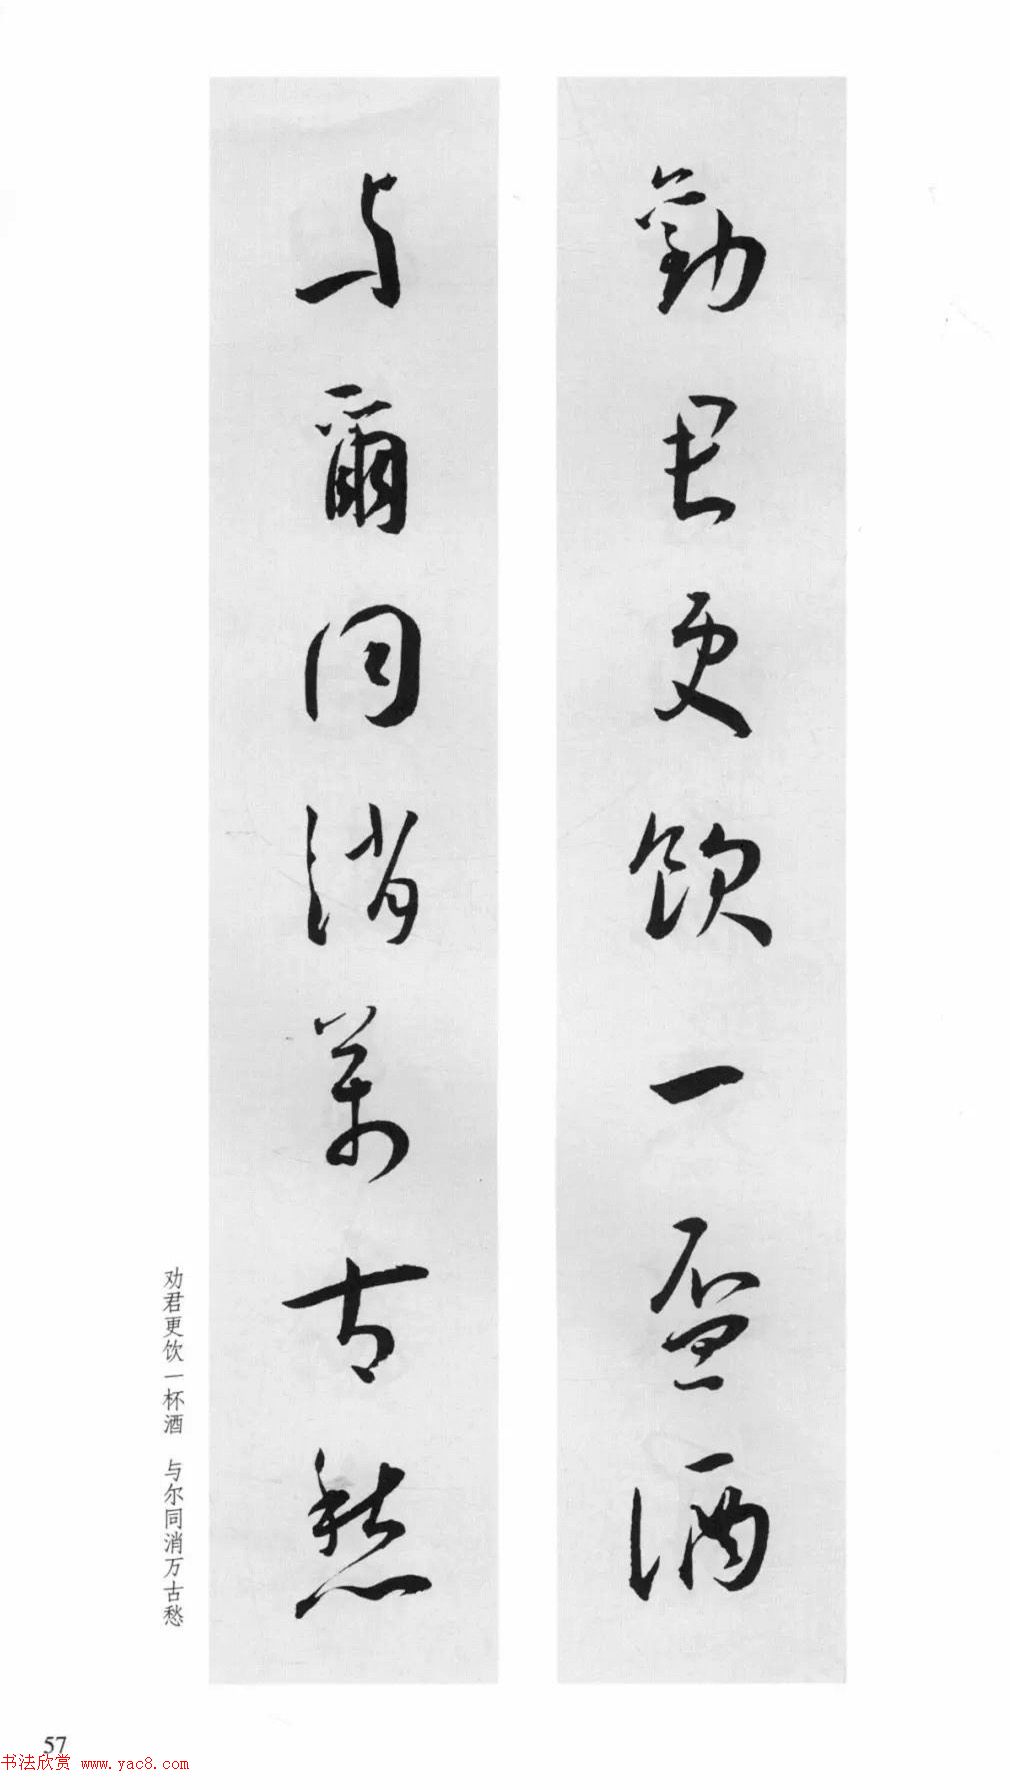 勸君更飲一盃酒
与爾同消萬古愁
劝君更饮一杯酒 与尔同消万古愁
57
书法欣赏 www.yac8.com